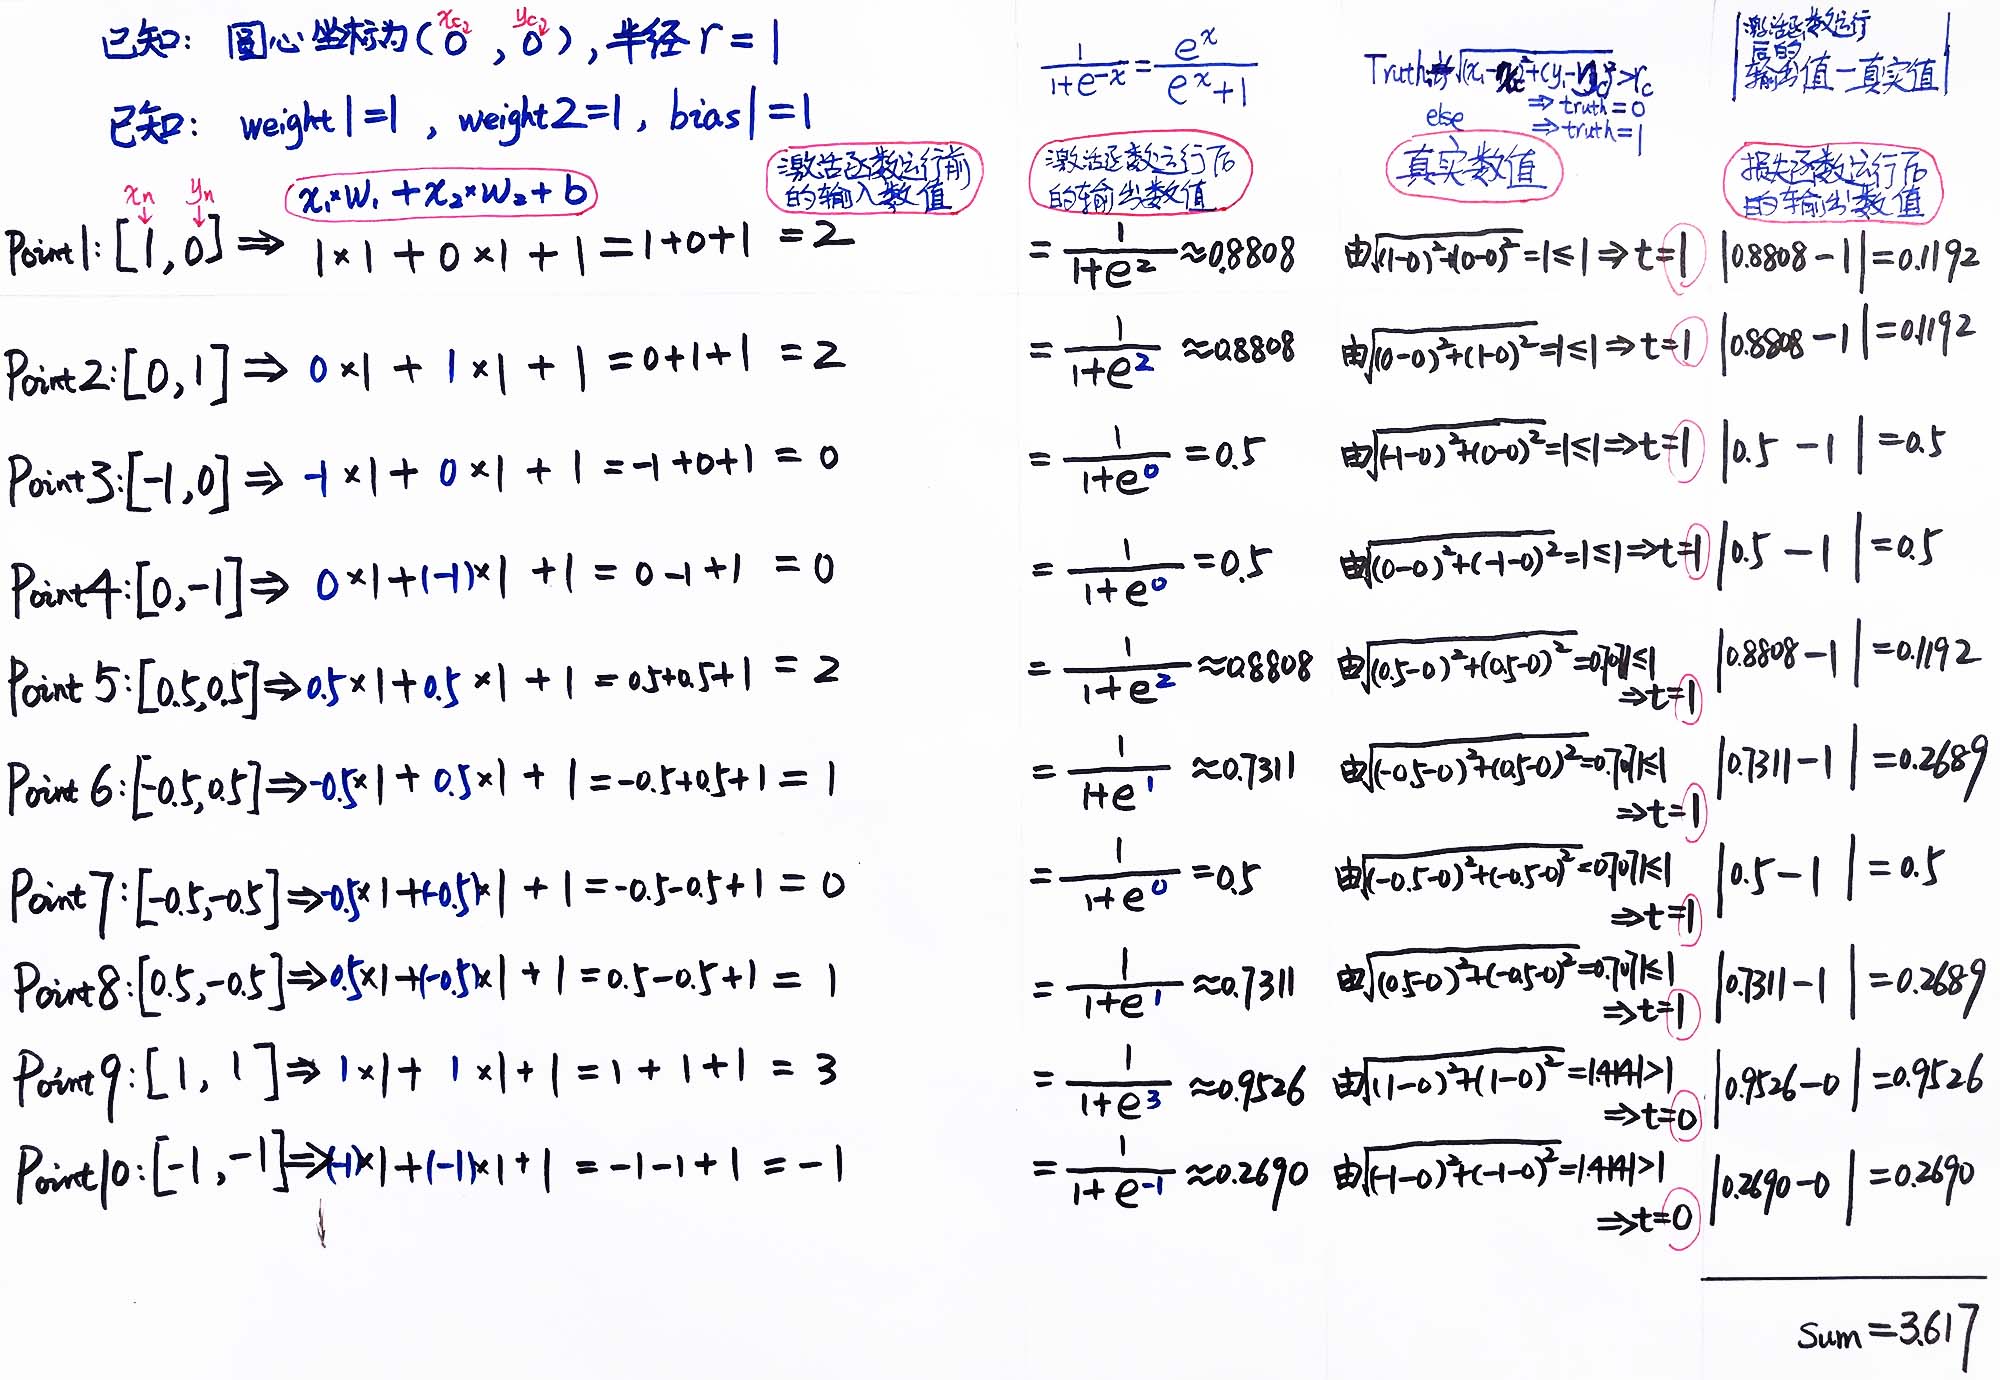 已知: 圆心坐标为(0, 0), 半径 r = 1
xc yc
已知: weight1=1, weight2=1, bias1=1
1/(1+e^-x) = e^x/(e^x+1)
Truth: √(x₁-xc)²+(y₁-yc)² > rc
⇒ truth=0
else ⇒ truth=1
|激活函数运行后的输出值-真实值|
xn yn
x₁*w₁ + x₂*w₂ + b
激活函数运行前的输入数值
激活函数运行后的输出数值
真实数值
损失函数运行后的输出数值
Point1: [1, 0] ⇒ 1×1 + 0×1 + 1 = 1+0+1 = 2 = 1/(1+e^2) ≈0.8808 由√(1-0)²+(0-0)² =1≤1 ⇒ t=1 |0.8808-1|=0.1192
Point2: [0, 1] ⇒ 0×1 + 1×1 + 1 = 0+1+1 = 2 = 1/(1+e^2) ≈0.8808 由√(0-0)²+(1-0)² =1≤1 ⇒ t=1 |0.8808-1|=0.1192
Point3: [-1, 0] ⇒ -1×1 + 0×1 + 1 = -1+0+1 = 0 = 1/(1+e^0) =0.5 由√(-1-0)²+(0-0)² =1≤1 ⇒ t=1 |0.5-1|=0.5
Point4: [0, -1] ⇒ 0×1+(-1)×1 + 1 = 0-1+1 = 0 = 1/(1+e^0) =0.5 由√(0-0)²+(-1-0)² =1≤1 ⇒ t=1 |0.5-1|=0.5
Point5: [0.5, 0.5] ⇒ 0.5×1+0.5×1 + 1 = 0.5+0.5+1 = 2 = 1/(1+e^2) ≈0.8808 由√(0.5-0)²+(0.5-0)² =0.7071≤1 ⇒ t=1 |0.8808-1|=0.1192
Point6: [-0.5, 0.5] ⇒ -0.5×1 + 0.5×1 + 1 = -0.5+0.5+1 = 1 = 1/(1+e^1) ≈0.7311 由√(-0.5-0)²+(0.5-0)² =0.7071≤1 ⇒ t=1 |0.7311-1|=0.2689
Point7: [-0.5, -0.5] ⇒ -0.5×1+(-0.5)×1 + 1 = -0.5-0.5+1 = 0 = 1/(1+e^0) =0.5 由√(-0.5-0)²+(-0.5-0)² =0.7071≤1 ⇒ t=1 |0.5-1|=0.5
Point8: [0.5, -0.5] ⇒ 0.5×1+(-0.5)×1 + 1 = 0.5-0.5+1 = 1 = 1/(1+e^1) ≈0.7311 由√(0.5-0)²+(-0.5-0)² =0.7071≤1 ⇒ t=1 |0.7311-1|=0.2689
Point9: [1, 1] ⇒ 1×1 + 1×1 + 1 = 1+1+1 = 3 = 1/(1+e^3) ≈0.9526 由√(1-0)²+(1-0)² =1.414>1 ⇒ t=0 |0.9526-0|=0.9526
Point10: [-1, -1] ⇒ (-1)×1+(-1)×1 + 1 = -1-1+1 = -1 = 1/(1+e^-1) ≈0.2690 由√(-1-0)²+(-1-0)² =1.414>1 ⇒ t=0 |0.2690-0|=0.2690
Sum=3.617